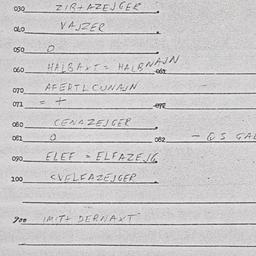 030 ZIR+AZEJGER
040 VAJZER
050 O
060 HALBAXT = HALBNAJN 065
070 AFERTLCUNAJN
071 = + 072
080 CENAZEJGER
081 O 082 - QS GAL
090 ELEF = ELFAZEJG
100 CVELFAZEJGER
900 IMITA DERNAXT